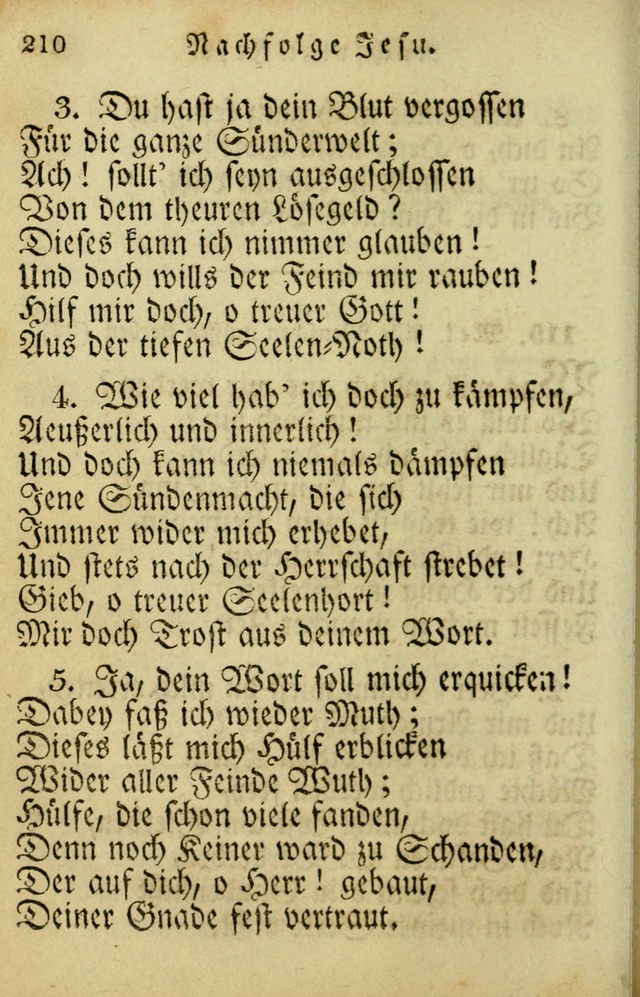 210 Nachfolge Jesu.
3. Du hast ja dein Blut vergossen
Für die ganze Sünderwelt;
Ach! sollt' ich seyn ausgeschlossen
Von dem theuren Lösegeld?
Dieses kann ich nimmer glauben!
Und doch wills der Feind mir rauben!
Hilf mir doch, o treuer Gott!
Aus der tiefen Seelen-Noth!
4. Wie viel hab' ich doch zu kämpfen,
Aeußerlich und innerlich!
Und doch kann ich niemals dämpfen
Jene Sündenmacht, die sich
Immer wider mich erhebet,
Und stets nach der Herrschaft strebet!
Gieb, o treuer Seelenhort!
Mir doch Trost aus deinem Wort.
5. Ja, dein Wort soll mich erquicken!
Dabey faß ich wieder Muth;
Dieses läßt mich Hülf erblicken
Wider aller Feinde Wuth;
Hülfe, die schon viele fanden,
Denn noch Keiner ward zu Schanden,
Der auf dich, o Herr! gebaut,
Deiner Gnade fest vertraut.